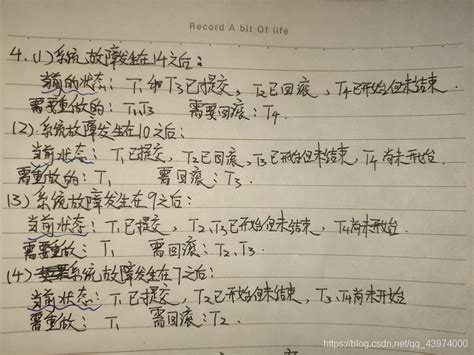 Record A bit Of life
4. (1) 系统故障发生在14之后:
当前的状态: T1和T3已提交, T2已回滚, T4已开始但未结束.
需要重做的: T1,T3 需要回滚: T4.
(2) 系统故障发生在10之后:
当前状态: T1已提交, T2已回滚, T3已开始但未结束, T4尚未开始.
需重做的: T1 需回滚: T3.
(3) 系统故障发生在9之后:
当前状态: T1已提交, T2,T3已开始但未结束, T4尚未开始.
需要重做: T1 需回滚: T2、T3.
(4) 系统故障发生在7之后:
当前状态: T1已提交, T2已开始但未结束, T3、T4尚未开始
需重做: T1 需回滚: T2.
https://blog.csdn.net/qq_43974000